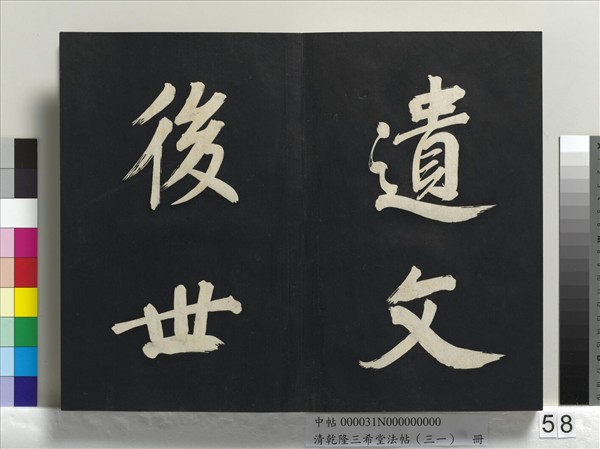 遺文
後世
中帖 000031N000000000
清乾隆三希堂法帖(三一) 冊
58